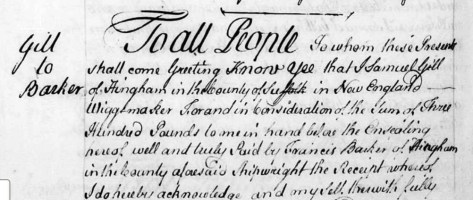 Gill
to
Barker
To all People To whom these Presents
shall come Greeting Know Yee that I Samuel Gill
of Hingham in the County of Suffolk in New England
Wiggmaker For and in Consideration of the Sum of Three
Hundred Pounds to me in hand before the Ensealing
hereof well and truly Paid by Francis Barker of Hingham
in the County aforesaid Shipwright the Receipt whereof
I do hereby acknowledge and my self therewith fully